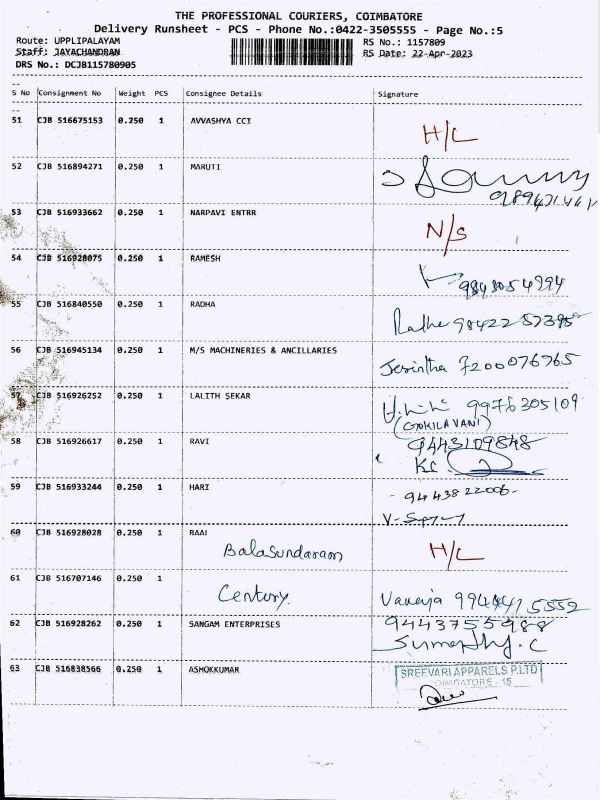 THE PROFESSIONAL COURIERS, COIMBATORE
Delivery Runsheet - PCS - Phone No.:0422-3505555 - Page No.:5
Route: UPPLIPALAYAM RS No.: 1157809
Staff: JAYACHANDRAN RS Date: 22-Apr-2023
DRS No.: DCJB115780905
S No Consignment No Weight PCS Consignee Details Signature
51 CJB 516675153 0.250 1 AVVASHYA CCI H/C
52 CJB 516894271 0.250 1 MARUTI
53 CJB 516933662 0.250 1 NARPAVI ENTRR N/S
54 CJB 516928075 0.250 1 RAMESH 9843054994
55 CJB 516840550 0.250 1 RADHA Radha 9842257395
56 CJB 516945134 0.250 1 M/S MACHINERIES & ANCILLARIES Jesintha 7200076765
57 CJB 516926252 0.250 1 LALITH SEKAR 9976305109
(GOKILAVANI)
58 CJB 516926617 0.250 1 RAVI 9443109848
KC
59 CJB 516933244 0.250 1 HARI 9443822006
60 CJB 516928028 0.250 1 BAAL
Balasundaram H/C
61 CJB 516707146 0.250 1
Century Vanaja
62 CJB 516928262 0.250 1 SANGAM ENTERPRISES 9443755988
Sumathy.C
63 CJB 516838566 0.250 1 ASHOKKUMAR SREEVARI APPARELS P.LTD
COIMBATORE - 15